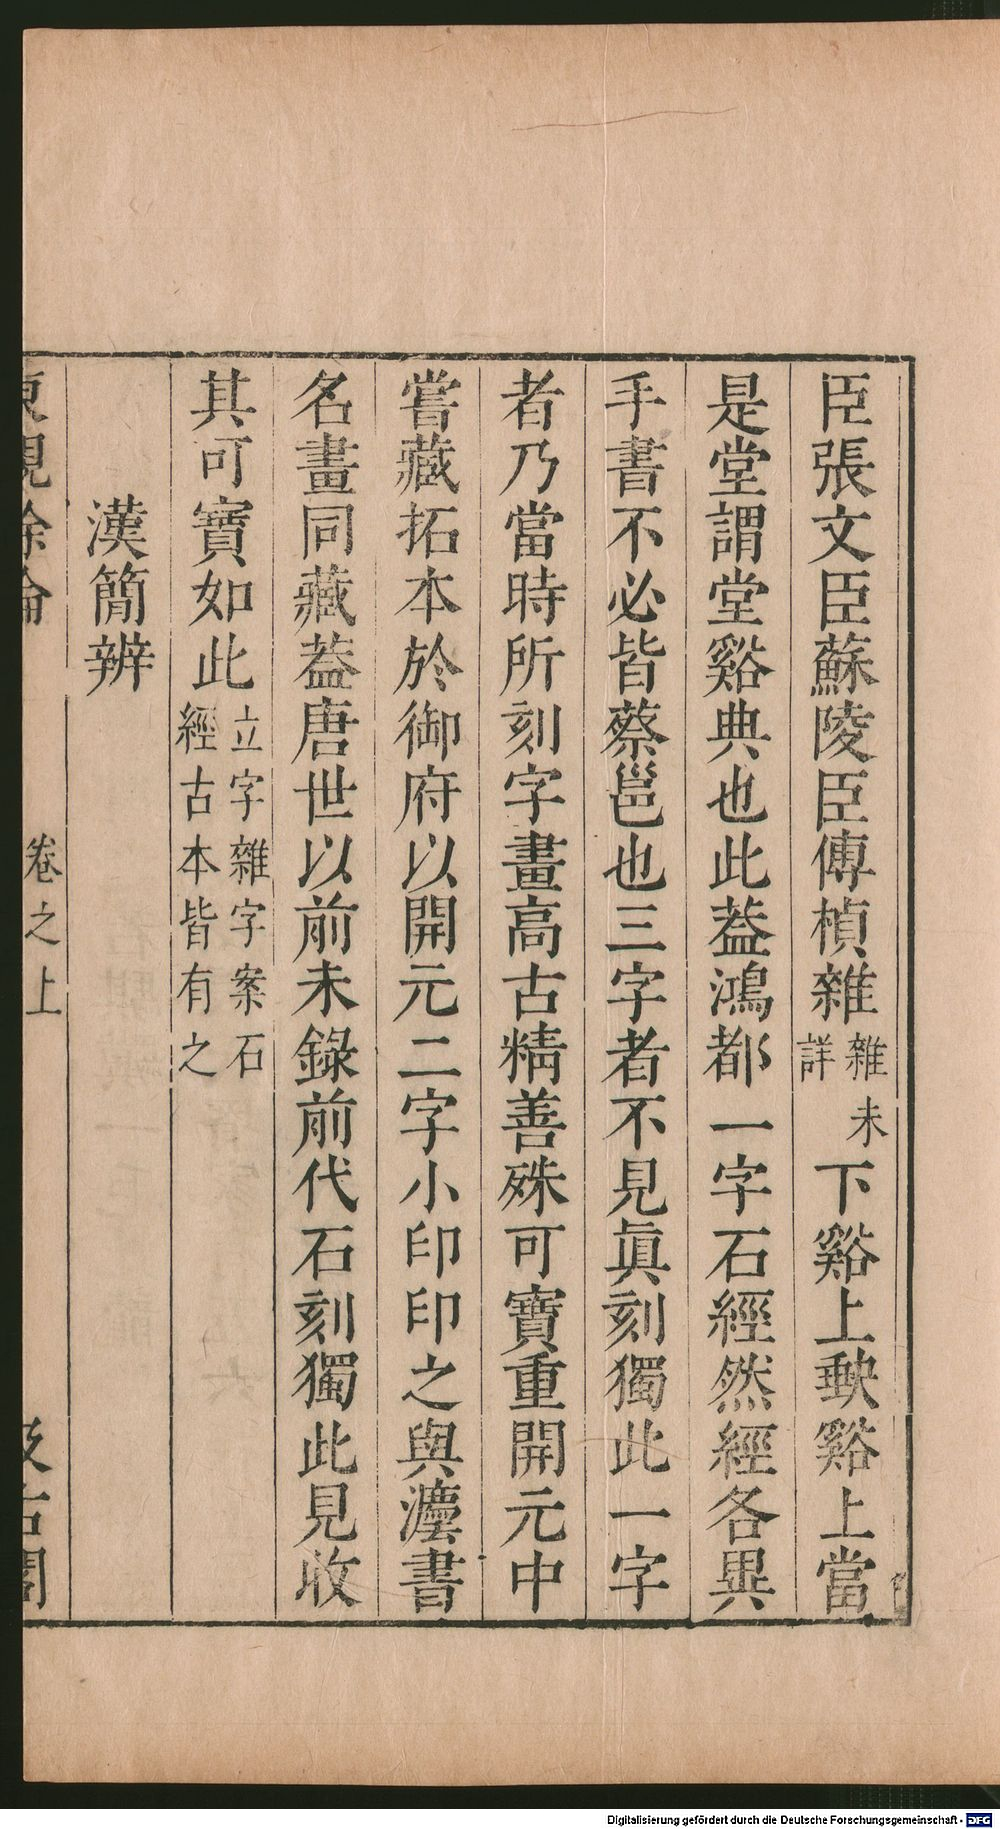 臣張文臣蘇陵臣傅楨雜雜未詳下谿上𡘊谿上當
是堂謂堂谿典也此葢鴻都一字石經然經各異
手書不必皆蔡邕也三字者不見眞刻獨此一字
者乃當時所刻字畫高古精善殊可寶重開元中
嘗藏拓本於御府以開元二字小印印之與灋書
名畫同藏葢唐世以前未錄前代石刻獨此見收
其可寶如此立字雜字案石經古本皆有之
漢簡辨
東觀餘論 卷之上 汲古閣
Digitalisierung gefördert durch die Deutsche Forschungsgemeinschaft - DFG